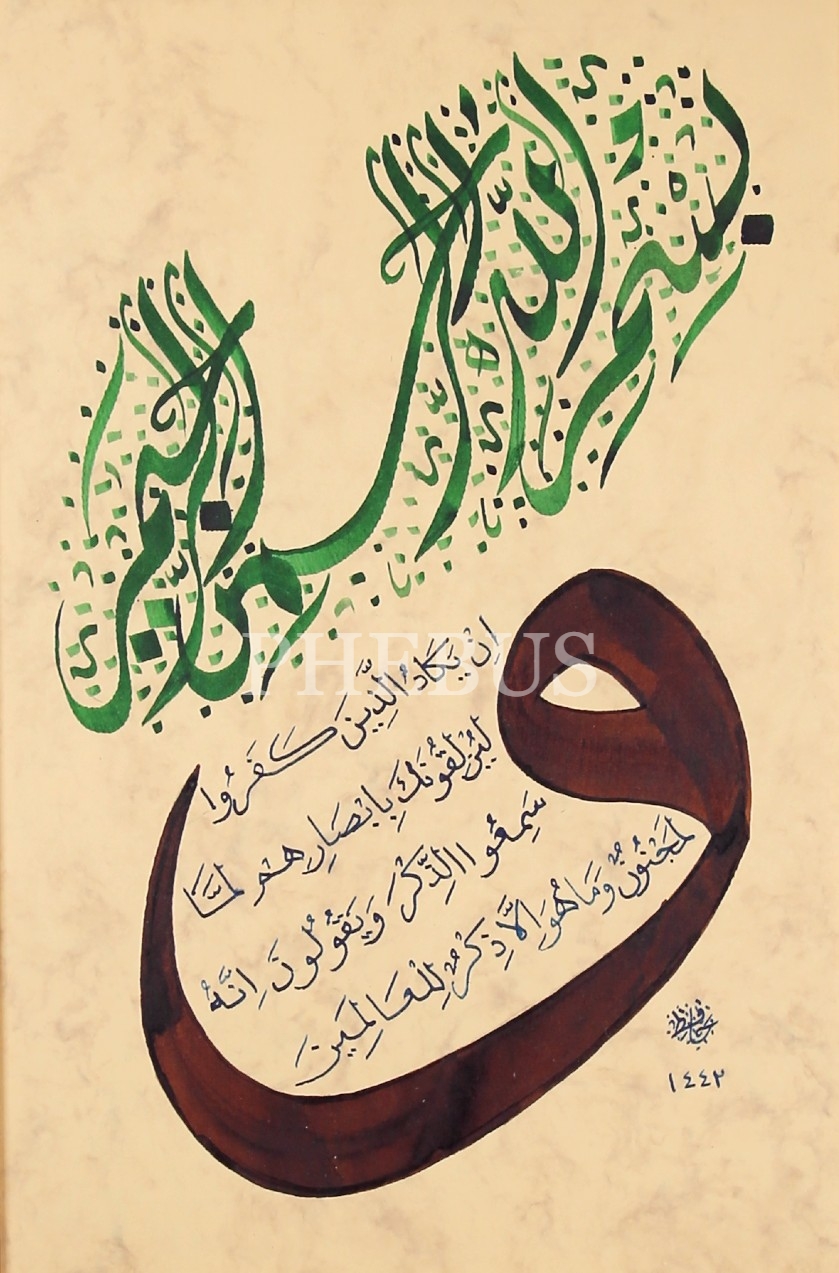 بسم الله الرحمن الرحيم
و
اِنْ يَكَادُ الَّذِينَ كَفَرُوا
لَيُزْلِقُونَكَ بِاَبْصَارِهِمْ لَمَّا
سَمِعُوا الذِّكْرَ وَيَقُولُونَ اِنَّهُ
لَمَجْنُونٌ وَمَا هُوَ اِلَّا ذِكْرٌ
لِلْعَالَمِينَ
١٤٤٢
PHEBUS